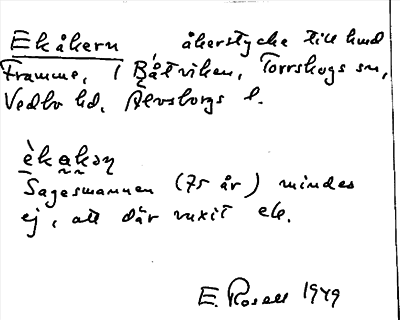 Ekåkern åkerstycke till hmd
Framme, i Båtviken, Torrskogs sn,
Vedbo hd, Älvsborgs l.
èkakəɳ
Sagesmannen (75 år) mindes
ej, att där vuxit ek.
E. Rosell 1949